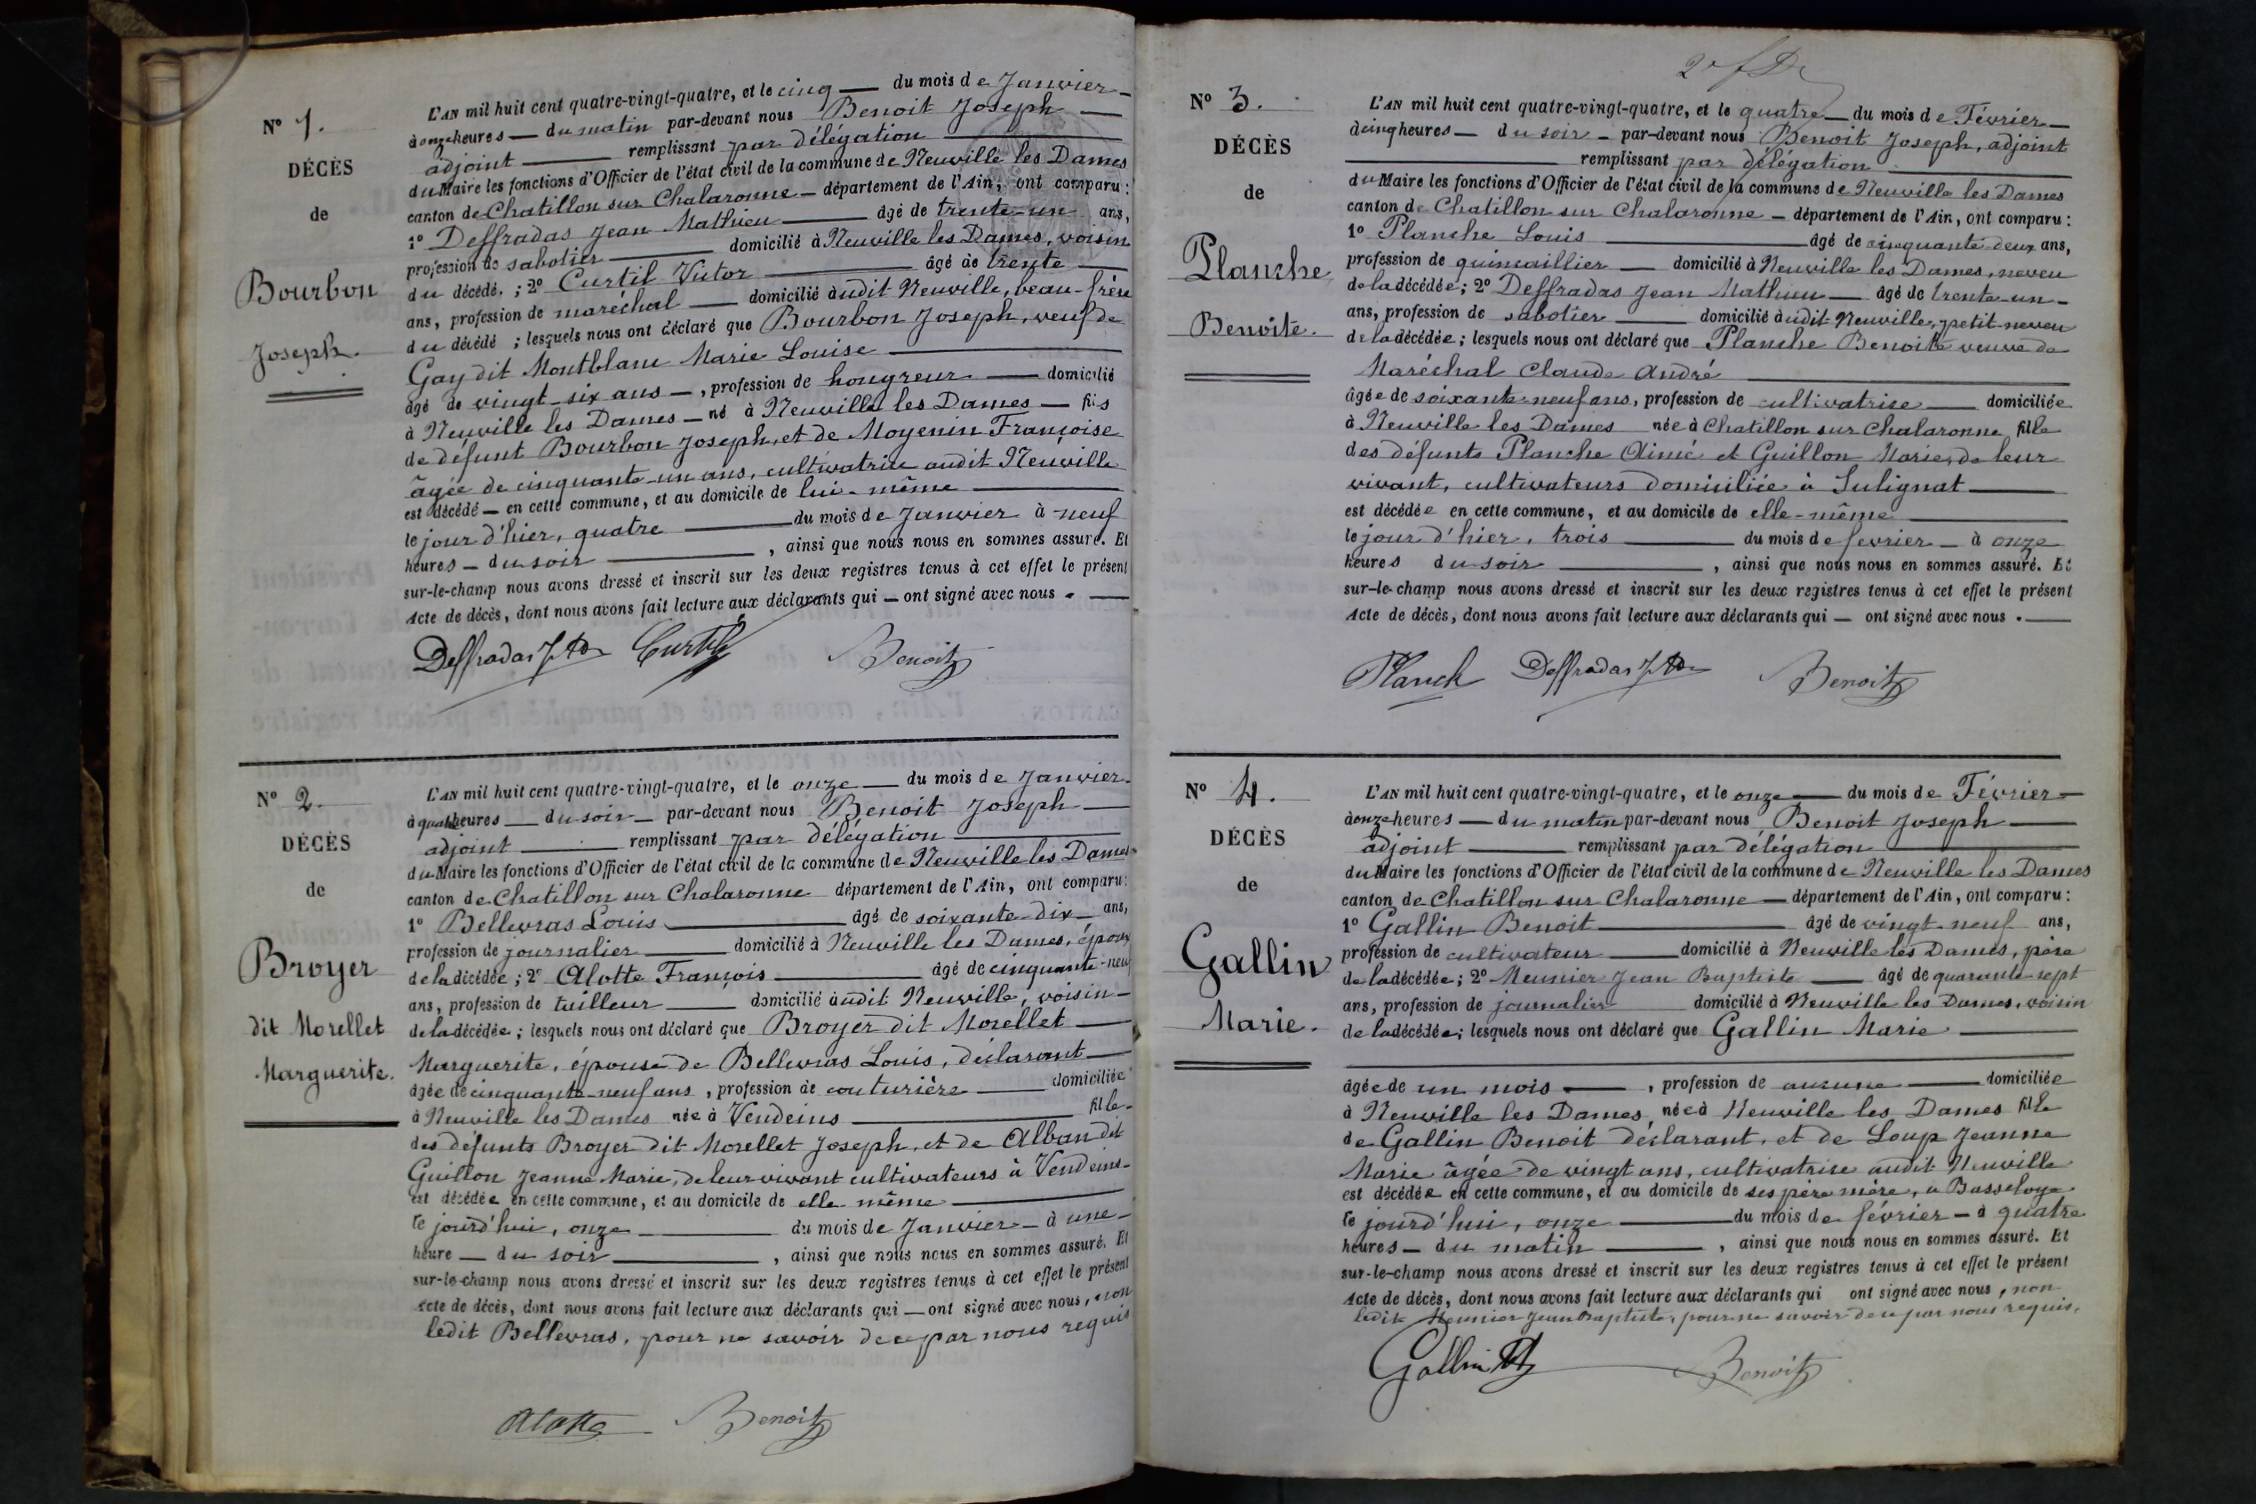 N° 1.
DÉCÈS
de
Bourbon
Joseph.
L'AN mil huit cent quatre-vingt-quatre, et le cinq du mois de Janvier
à onze heures du matin par-devant nous Benoit Joseph
adjoint remplissant par délégation
du Maire les fonctions d'Officier de l'état civil de la commune de Neuville les Dames
canton de Chatillon sur Chalaronne département de l'Ain, ont comparu :
1° Deffradas Jean Mathieu âgé de trente-un ans,
profession de sabotier domicilié à Neuville les Dames, voisin
du décédé ; 2° Curtil Victor âgé de trente
ans, profession de maréchal domicilié audit Neuville, beau-frère
du décédé ; lesquels nous ont déclaré que Bourbon Joseph, veuf de
Gay dit Montblanc Marie Louise
âgé de vingt-six ans, profession de hongreur domicilié
à Neuville les Dames né à Neuville les Dames fils
de défunt Bourbon Joseph, et de Moyenin Françoise
âgée de cinquante-un ans, cultivatrice audit Neuville
est décédé en cette commune, et au domicile de lui-même
le jour d'hier, quatre du mois de Janvier à neuf
heures du soir , ainsi que nous nous en sommes assuré. Et
sur-le-champ nous avons dressé et inscrit sur les deux registres tenus à cet effet le présent
Acte de décès, dont nous avons fait lecture aux déclarants qui ont signé avec nous.
Deffradas Curtil Benoit
N° 2.
DÉCÈS
de
Broyer
dit Morellet
Marguerite.
L'AN mil huit cent quatre-vingt-quatre, et le onze du mois de Janvier
à quatre heures du soir par-devant nous Benoit Joseph
adjoint remplissant par délégation
du Maire les fonctions d'Officier de l'état civil de la commune de Neuville les Dames
canton de Chatillon sur Chalaronne département de l'Ain, ont comparu :
1° Bellevras Louis âgé de soixante-dix ans,
profession de journalier domicilié à Neuville les Dames, époux
de la décédée ; 2° Alotte François âgé de cinquante-neuf
ans, profession de tailleur domicilié audit Neuville, voisin
de la décédée ; lesquels nous ont déclaré que Broyer dit Morellet
Marguerite, épouse de Bellevras Louis, déclarant
âgée de cinquante-neuf ans, profession de couturière domiciliée
à Neuville les Dames née à Vendeins fille
des défunts Broyer dit Morellet Joseph, et de Alban dit
Guillon Jeanne Marie, de leur vivant cultivateurs à Vendeins
est décédée en cette commune, et au domicile de elle-même
le jourd'hui, onze du mois de Janvier à une
heure du soir , ainsi que nous nous en sommes assuré. Et
sur-le-champ nous avons dressé et inscrit sur les deux registres tenus à cet effet le présent
Acte de décès, dont nous avons fait lecture aux déclarants qui ont signé avec nous, non
ledit Bellevras, pour ne savoir de ce par nous requis
Alotte Benoit
N° 3.
DÉCÈS
de
Planche
Benoite.
L'AN mil huit cent quatre-vingt-quatre, et le quatre du mois de Février
à cinq heures du soir par-devant nous Benoit Joseph, adjoint
remplissant par délégation
du Maire les fonctions d'Officier de l'état civil de la commune de Neuville les Dames
canton de Chatillon sur Chalaronne département de l'Ain, ont comparu :
1° Planche Louis âgé de cinquante-deux ans,
profession de quincaillier domicilié à Neuville les Dames, neveu
de la décédée ; 2° Deffradas Jean Mathieu âgé de trente-un
ans, profession de sabotier domicilié audit Neuville, petit-neveu
de la décédée ; lesquels nous ont déclaré que Planche Benoite veuve de
Maréchal Claude André
âgée de soixante-neuf ans, profession de cultivatrice domiciliée
à Neuville les Dames née à Chatillon sur Chalaronne fille
des défunts Planche Aimé et Guillon Marie, de leur
vivant, cultivateurs domiciliée à Sulignat
est décédée en cette commune, et au domicile de elle-même
le jour d'hier, trois du mois de février à onze
heures du soir , ainsi que nous nous en sommes assuré. Et
sur-le-champ nous avons dressé et inscrit sur les deux registres tenus à cet effet le présent
Acte de décès, dont nous avons fait lecture aux déclarants qui ont signé avec nous.
Planch Deffradas Benoit
N° 4.
DÉCÈS
de
Gallin
Marie.
L'AN mil huit cent quatre-vingt-quatre, et le onze du mois de Février
à onze heures du matin par-devant nous Benoit Joseph
adjoint remplissant par délégation
du Maire les fonctions d'Officier de l'état civil de la commune de Neuville les Dames
canton de Chatillon sur Chalaronne département de l'Ain, ont comparu :
1° Gallin Benoit âgé de vingt-neuf ans,
profession de cultivateur domicilié à Neuville les Dames, père
de la décédée ; 2° Meunier Jean Baptiste âgé de quarante-sept
ans, profession de journalier domicilié à Neuville les Dames, voisin
de la décédée ; lesquels nous ont déclaré que Gallin Marie
âgée de un mois , profession de aucune domiciliée
à Neuville les Dames née à Neuville les Dames fille
de Gallin Benoit déclarant, et de Loup Jeanne
Marie âgée de vingt ans, cultivatrice audit Neuville
est décédée en cette commune, et au domicile de ses père mère, à Basseloye
le jourd'hui, onze du mois de février à quatre
heures du matin , ainsi que nous nous en sommes assuré. Et
sur-le-champ nous avons dressé et inscrit sur les deux registres tenus à cet effet le présent
Acte de décès, dont nous avons fait lecture aux déclarants qui ont signé avec nous, non
ledit Meunier Jean Baptiste, pour ne savoir de ce par nous requis.
Gallin Benoit